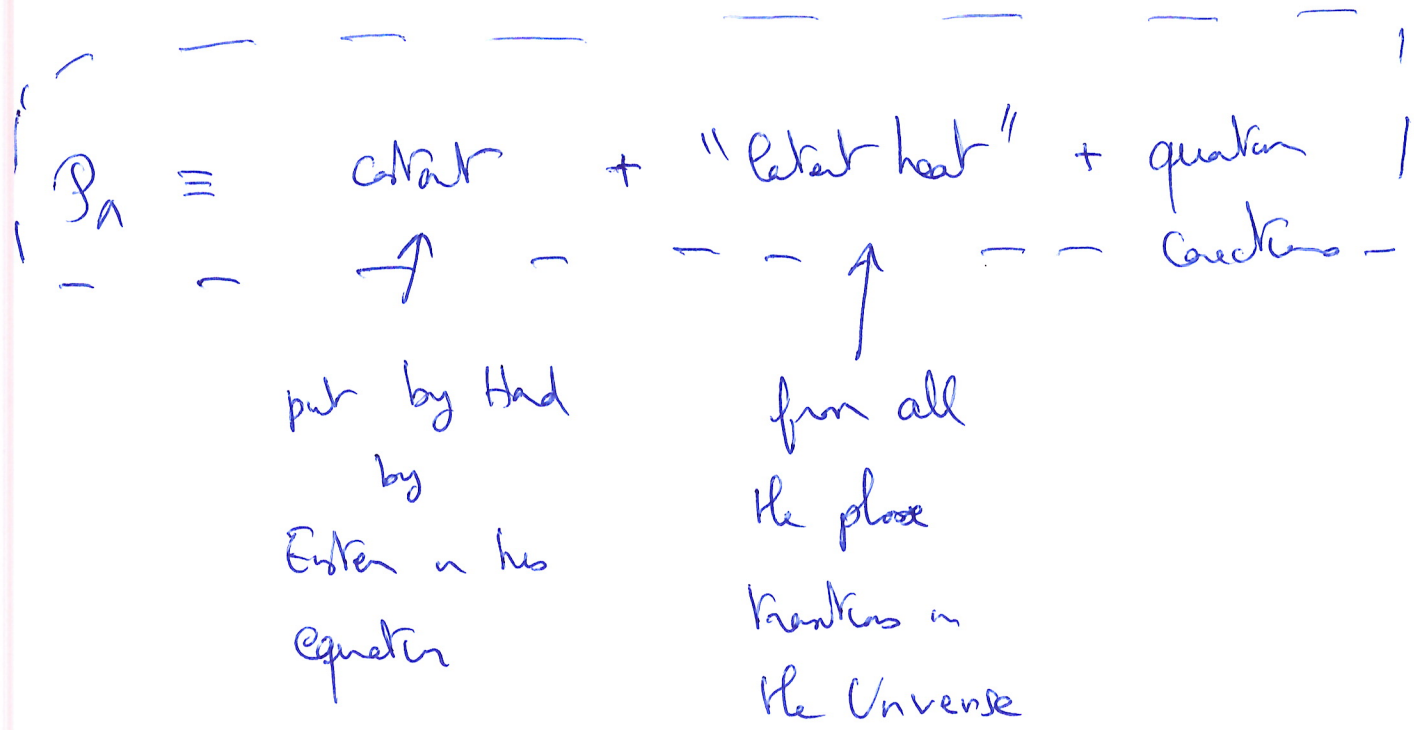 ρ_Λ ≡ constant + "latent heat" + quantum
corrections
put by Hand
by
Einstein in his
equation
from all
the phase
transitions in
the Universe